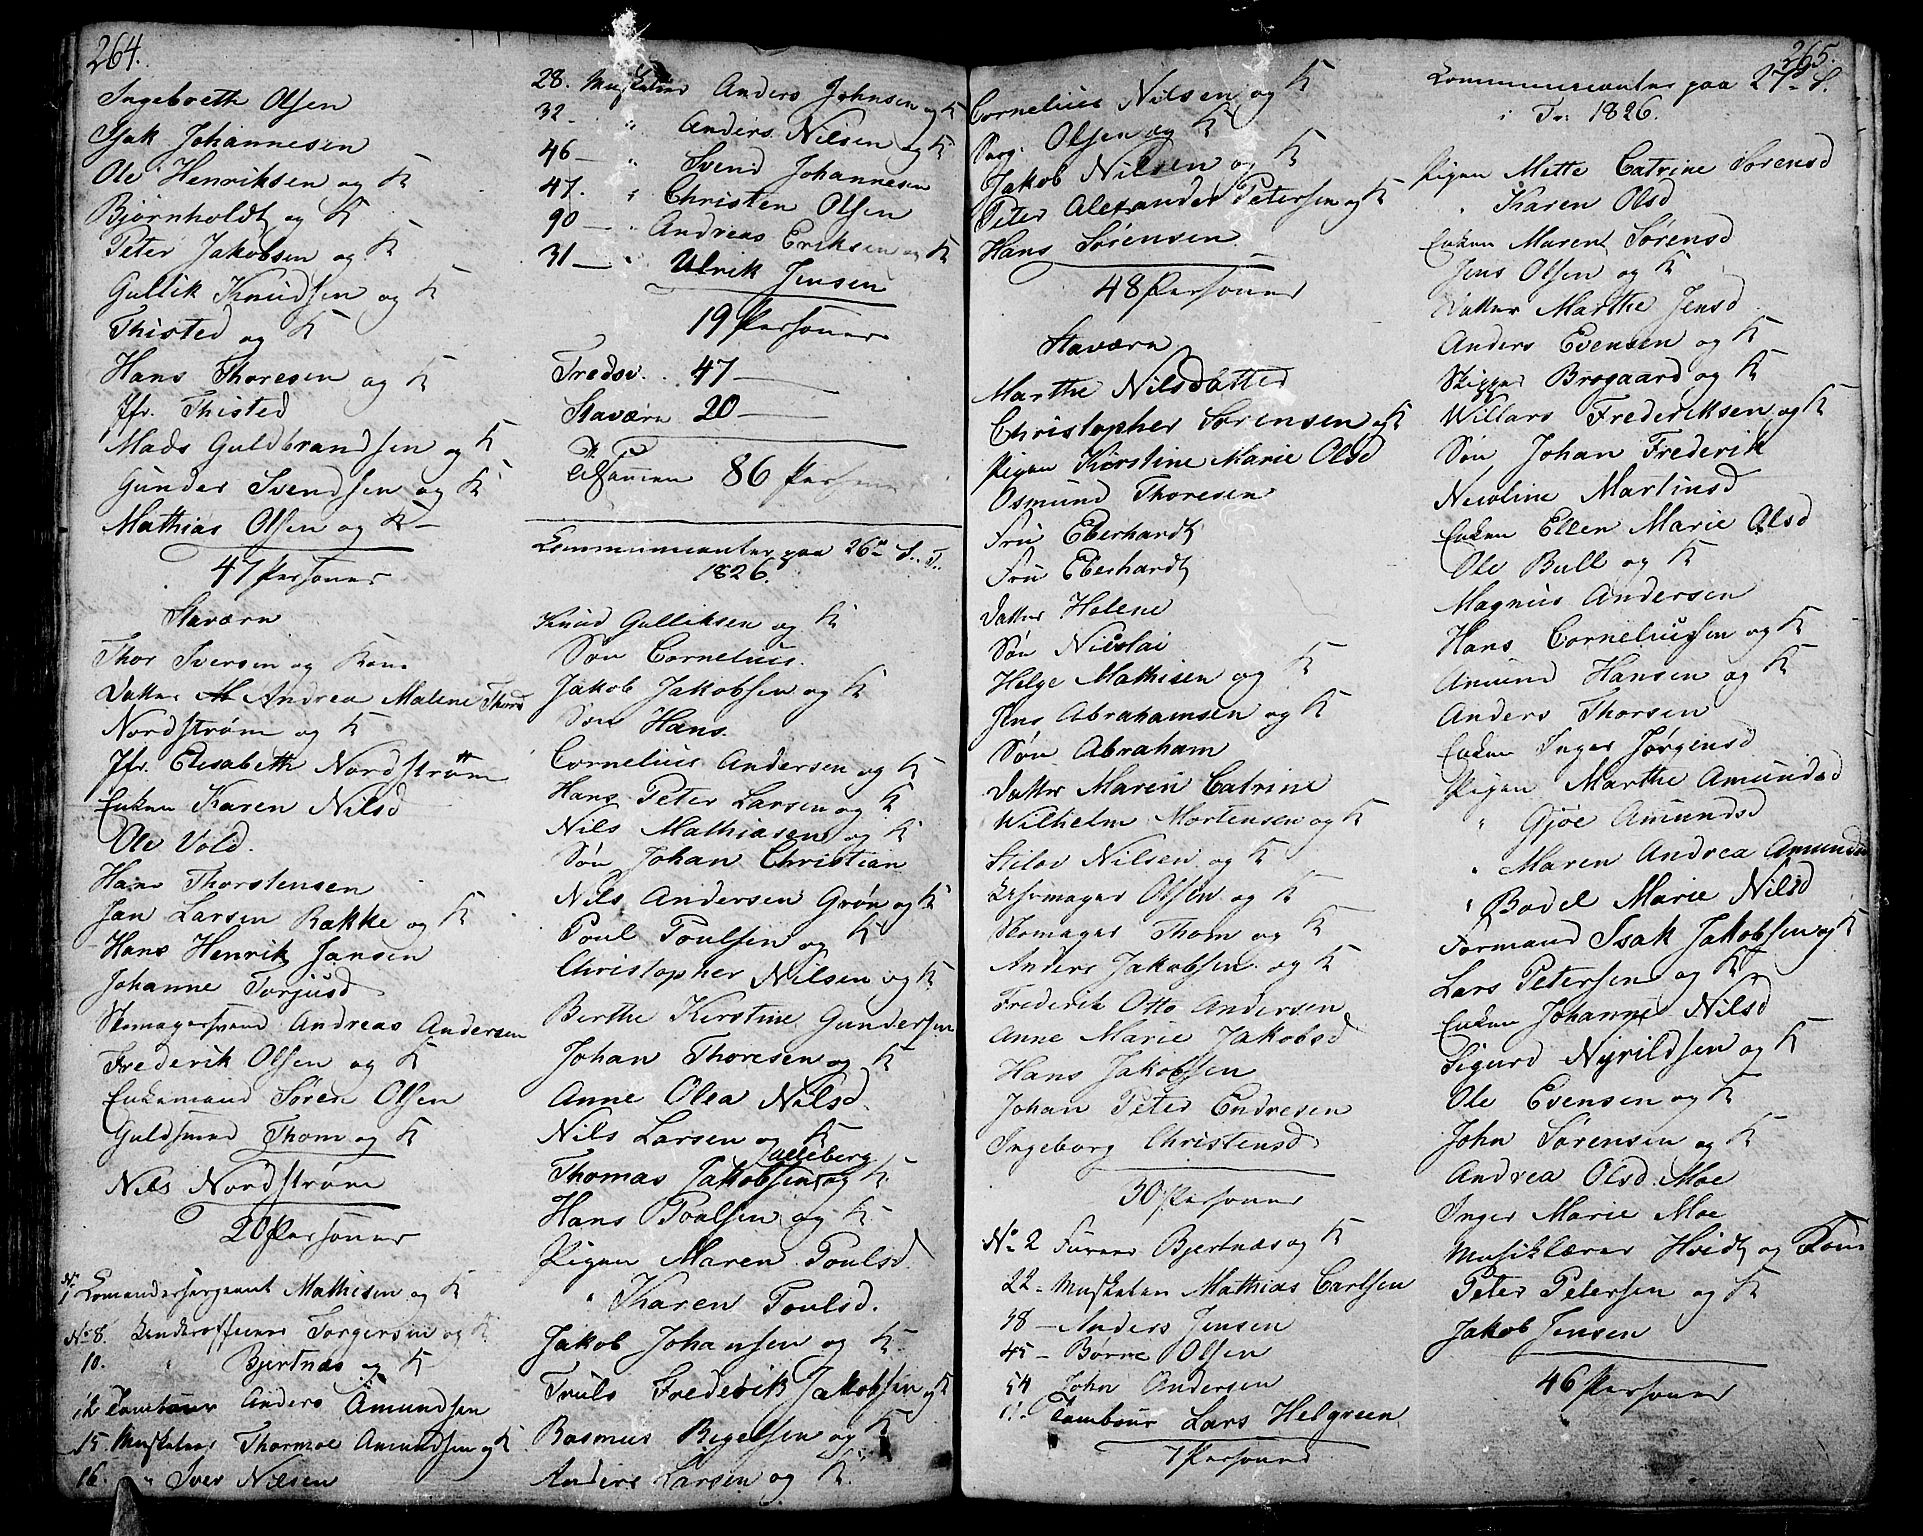 264.
Ingebreth Olsen
Isak Johannesen
Ole Henriksen og K
Bjørnholdt og K
Peter Jakobsen og K
Gullik Knudsen og K
Thisted og K
Hans Thoresen og K
Jfr. Thisted
Mads Guldbrandsen og K
Gunder Svendsen og K
Mathias Olsen og K
47 Personer
Staværn
Thor Iversen og Kone
Datter Andrea Malene Thord
Nordstrøm og K
Jfr. Elisabeth Nordstrøm
Enken Karen Nilsd
Ole Vold.
Hans Thorstensen
Jan Larsen Rakke og K
Hans Henrik Jansen
Johanne Torjusd
Skomagersvend Andreas Andersen
Frederik Olsen og K
Enkemand Søren Olsen
Guldsmed Thom og K
Nils Nordstrøm
20 Personer
No 1 Comandersergeant Mathisen og K
No 8. Underofficeer Torgersen og K
10. " Bjertnæs og K
12 Tambour Anders Amundsen
15 Musketeer Thormoe Amundsen og K
16. " Iver Nilsen
28. Musketeer Anders Johnsen og K
32 - " Anders Nilsen og K
46 - " Svend Johannesen
47. " Christen Olsen
90 - " Andreas Eriksen og K
31 - " Ulrik Jensen
19 Personer
Fredsv. 47 -
Staværn 20 -
Tilsammen 86 Personer
Communicanter paa 26de S. T.
1826.
Knud Gulliksen og K
Søn Cornelius.
Jakob Jakobsen og K
Søn Hans.
Cornelius Andersen og K
Hans Peter Larsen og K
Nils Mathiasen og K
Søn Johan Christian
Nils Andersen Grøn og K
Poul Poulsen og K
Christopher Nilsen og K
Berthe Kirstine Gundersen
Johan Thoresen og K
Anne Olea Nilsd.
Nils Larsen og K
Thomas Jakobsen Falleberg og K
Hans Poulsen og K
Pigen Maren Poulsd.
" Karen Poulsd.
Jakob Johansen og K
Truls Frederik Jakobsen og K
Rasmus Bigelsen og K
Anders Larsen og K
265.
Cornelius Nilsen og K
Serg. Olsen og K
Jakob Nilsen og K
Peter Alexander Petersen og K
Hans Sørensen
48 Personer
Staværn
Marthe Nilsdatter
Christopher Sørensen og K
Pigen Kirstine Marie Olsd
Osmund Thoresen
Fru Eberhardt
Fru Eberhardt
Datter Helene
Søn Nicolai
Helge Mathisen og K
Jens Abrahamsen og K
Søn Abraham
Datter Maren Catrine
Wilhelm Mortensen og K
Stilov Nilsen og K
Olsen og K
Skomager Thom og K
Anders Jakobsen og K
Frederik Otto Andersen
Anne Marie Jakobsd
Hans Jakobsen
Johan Peter Endresen
Ingeborg Christensd
30 Personer
No 2 Fureer Bjertnæs og K
22 - Musketeer Mathias Carlsen
38 - Anders Jensen
45 - Børre Olsen
54 John Andersen
11. Tambour Lars Helgreen
7 Personer
Communicanter paa 27de S.
i Tr. 1826.
Pigen Mette Catrine Sørensd
" Karen Olsd
Enken Maren Sørensd
Jens Olsen og K
Datter Marthe Jensd
Anders Evensen og K
Skipper Brogaard og K
Willars Frederiksen og K
Søn Johan Frederik
Nicoline Martinsd
Enken Ellen Marie Olsd
Ole Bull og K
Magnus Andersen
Hans Corneliussen og K
Amund Hansen og K
Anders Thorsen
Enken Inger Jørgensd
Pigen Marthe Amundsd
" Gjøe Amundsd
" Maren Andrea Amundsd
" Bodel Marie Nilsd
Formand Isak Jakobsen og K
Lars Petersen og K
Enken Johanne Nilsd
Sigurd Nyrildsen og K
Ole Evensen og K
John Sørensen og K
Andrea Olsd Moe
Inger Marie Moe
Musiklærer Hvidt og Kone
Peter Petersen og K
Jakob Jensen
46 Personer